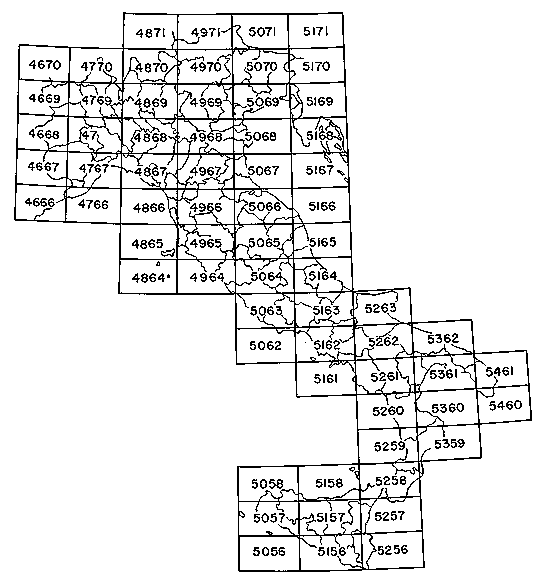 4871 4971 5071 5171
4670 4770 4870 4970 5070 5170
4669 4769 4869 4969 5069 5169
4668 47 4868 4968 5068 5168
4667 4767 4867 4967 5067 5167
4666 4766 4866 4966 5066 5166
4865 4965 5065 5165
4864 4964 5064 5164
5063 5163 5263
5062 5162 5262 5362
5161 5261 5361 5461
5260 5360 5460
5259 5359
5058 5158 5258
5057 5157 5257
5056 5156 5256